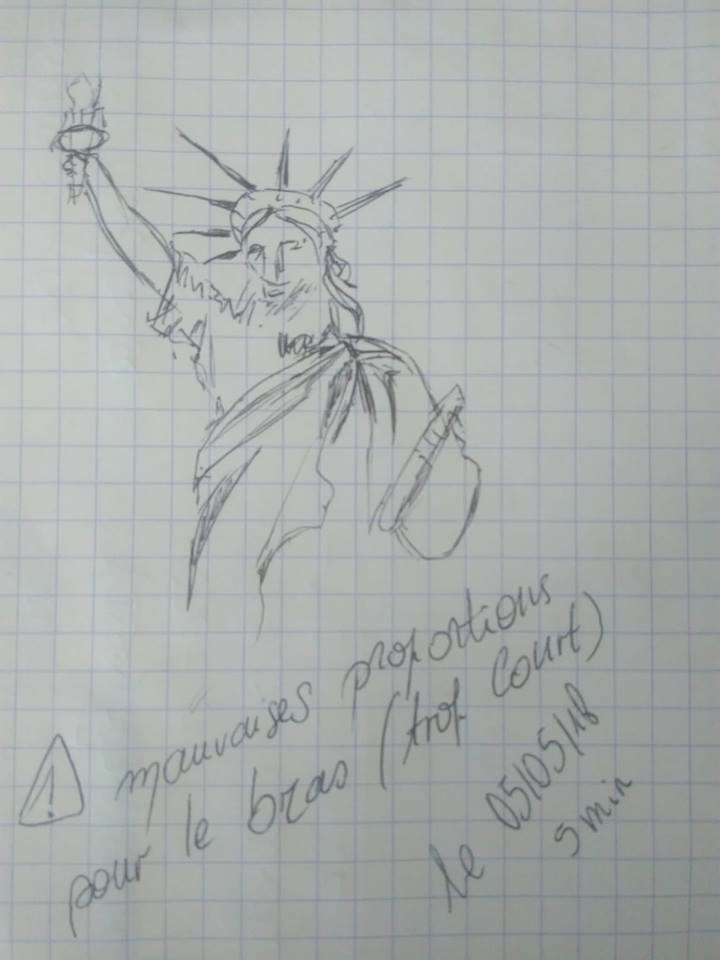 mauvaises proportions
pour le bras (trop court)
le 05/05/18
5 min